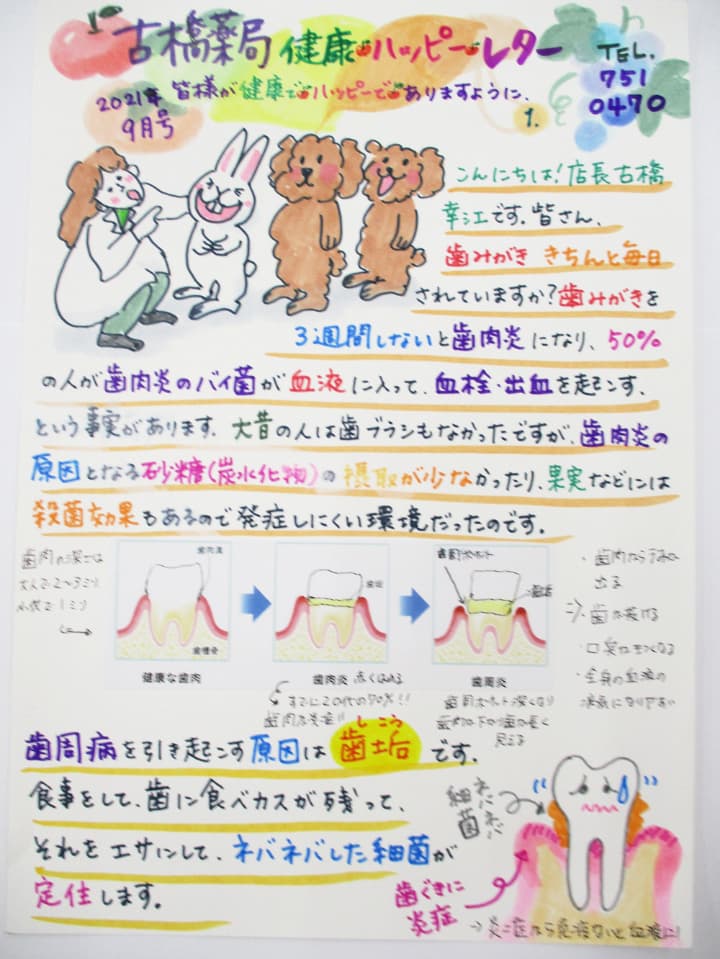 古橋薬局 健康ハッピーレター
TEL.
751
0470
2021年
9月号
皆様が健康でハッピーでありますように、
1.
こんにちは！店長古橋
幸江です。皆さん、
歯みがき きちんと毎日
されていますか？歯みがきを
3週間しないと歯肉炎になり、50%
の人が歯肉炎のバイ菌が血液に入って、血栓・出血を起こす、
という事実があります。大昔の人は歯ブラシもなかったですが、歯肉炎の
原因となる砂糖（炭水化物）の摂取が少なかったり、果実などには
殺菌効果もあるので発症しにくい環境だったのです。
歯肉の深さは
大人で2～3ミリ
1ミリ
歯肉溝
歯槽骨
健康な歯肉
歯垢
歯肉炎 赤くはれる
すでに20代の70%!!
歯肉炎
歯周ポケット
歯周炎
歯周ポケット深くなり
歯が長く
見える
・歯肉からうみが
出る
⇒・歯が抜ける
・口臭がきつくなる
・全身の血液の
病気になりやすい
歯周病を引き起こす原因は歯垢です。
しこう
食事をして、歯に食べカスが残って、
それをエサにして、ネバネバした細菌が
定住します。
ネバネバ
細菌
歯ぐきに
炎症